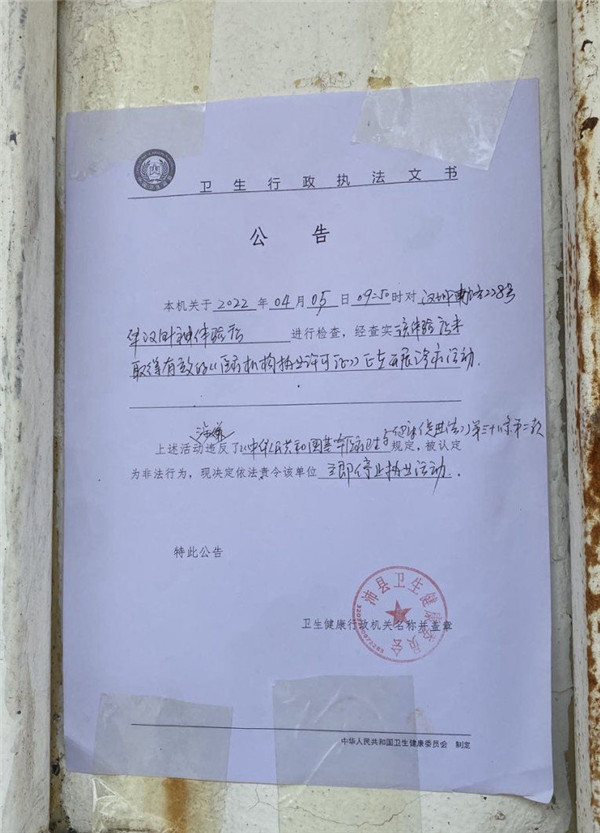 卫生行政执法文书
公 告
本机关于 2022 年 04 月 05 日 09:50时对 汉城南路228号
进行检查，经查实 该体验店未
取得有效的《医疗机构执业许可证》正在开展诊疗活动.
涉嫌
上述活动违反了《中华人民共和国基本医疗卫生与健康促进法》第三十八条第二款规定，被认定
为非法行为，现决定依法责令该单位 立即停止执业活动.
特此公告
沛县卫生健康委员会
卫生健康行政机关名称并盖章
中华人民共和国卫生健康委员会 制定